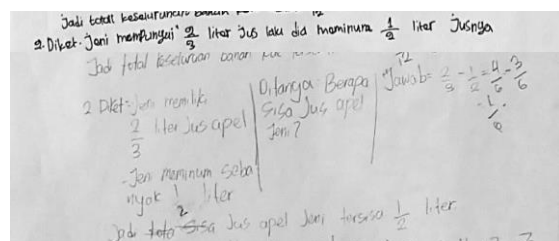 Jadi total keseluruhan bahan
12
2. Diket. Jeni mempunyai 2/3 liter jus lalu dia meminum 1/2 liter Jusnya
Jadi total keseluruan bahan kue
12
2 Diket: Jeni memiliki
2/3 liter Jus apel
- Jeni meminum seba
nyak 1/2 liter
Ditanya: Berapa
Sisa Jus apel
Jeni?
Jawab = 2/3 - 1/2 = 4/6 - 3/6
= 1/6
Jadi Sisa Jus apel Jeni tersisa 1/2 liter